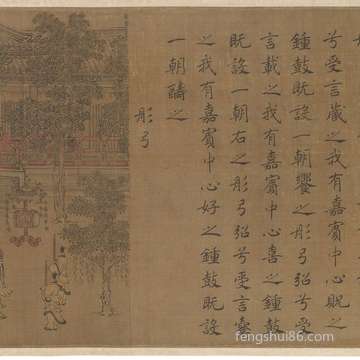 兮受言藏之我有嘉賓中心貺之
鍾鼓既設一朝饗之彤弓弨兮受
言載之我有嘉賓中心喜之鍾鼓
既設一朝右之彤弓弨兮受言櫜
之我有嘉賓中心好之鍾鼓既設
一朝醻之
彤弓
fengshui86.com